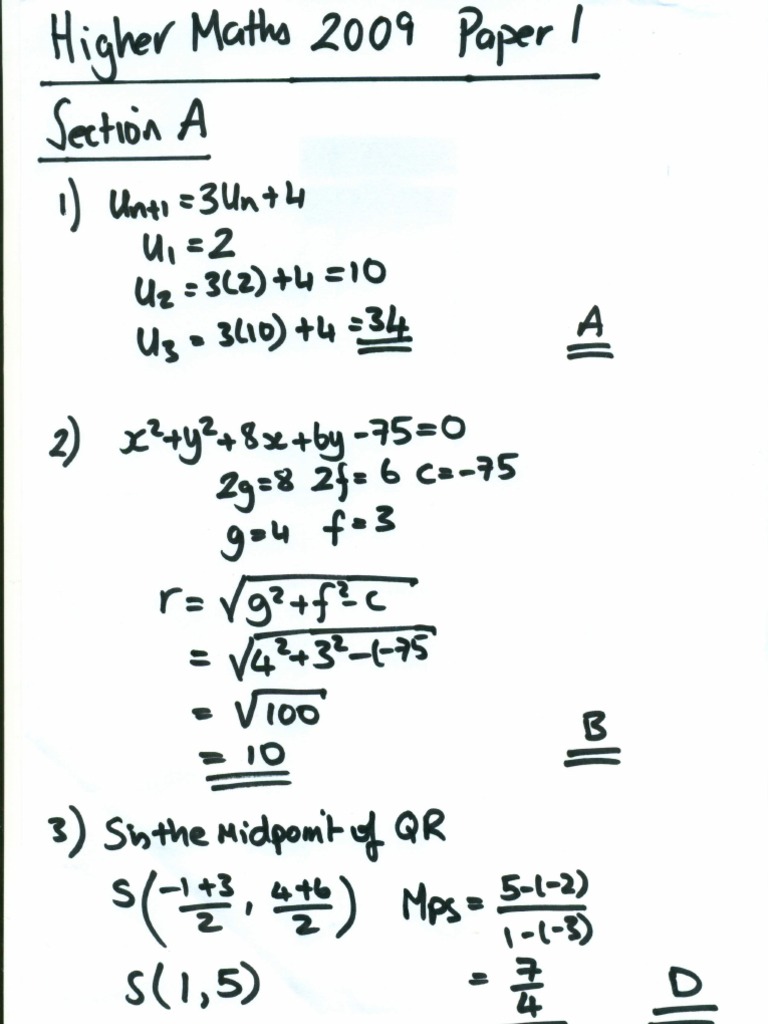 Higher Maths 2009 Paper 1
Section A
1) Un+1 = 3Un + 4
U1 = 2
U2 = 3(2) + 4 = 10
U3 = 3(10) + 4 = 34
A
2) x² + y² + 8x + 6y - 75 = 0
2g = 8 2f = 6 c = -75
g = 4 f = 3
r = √(g² + f² - c
= √4² + 3² - (-75
= √100
= 10
B
3) S is the Midpoint of QR
S(-1+3/2, 4+6/2) Mps = 5-(-2)/1-(-3)
S(1,5) = 7/4
D